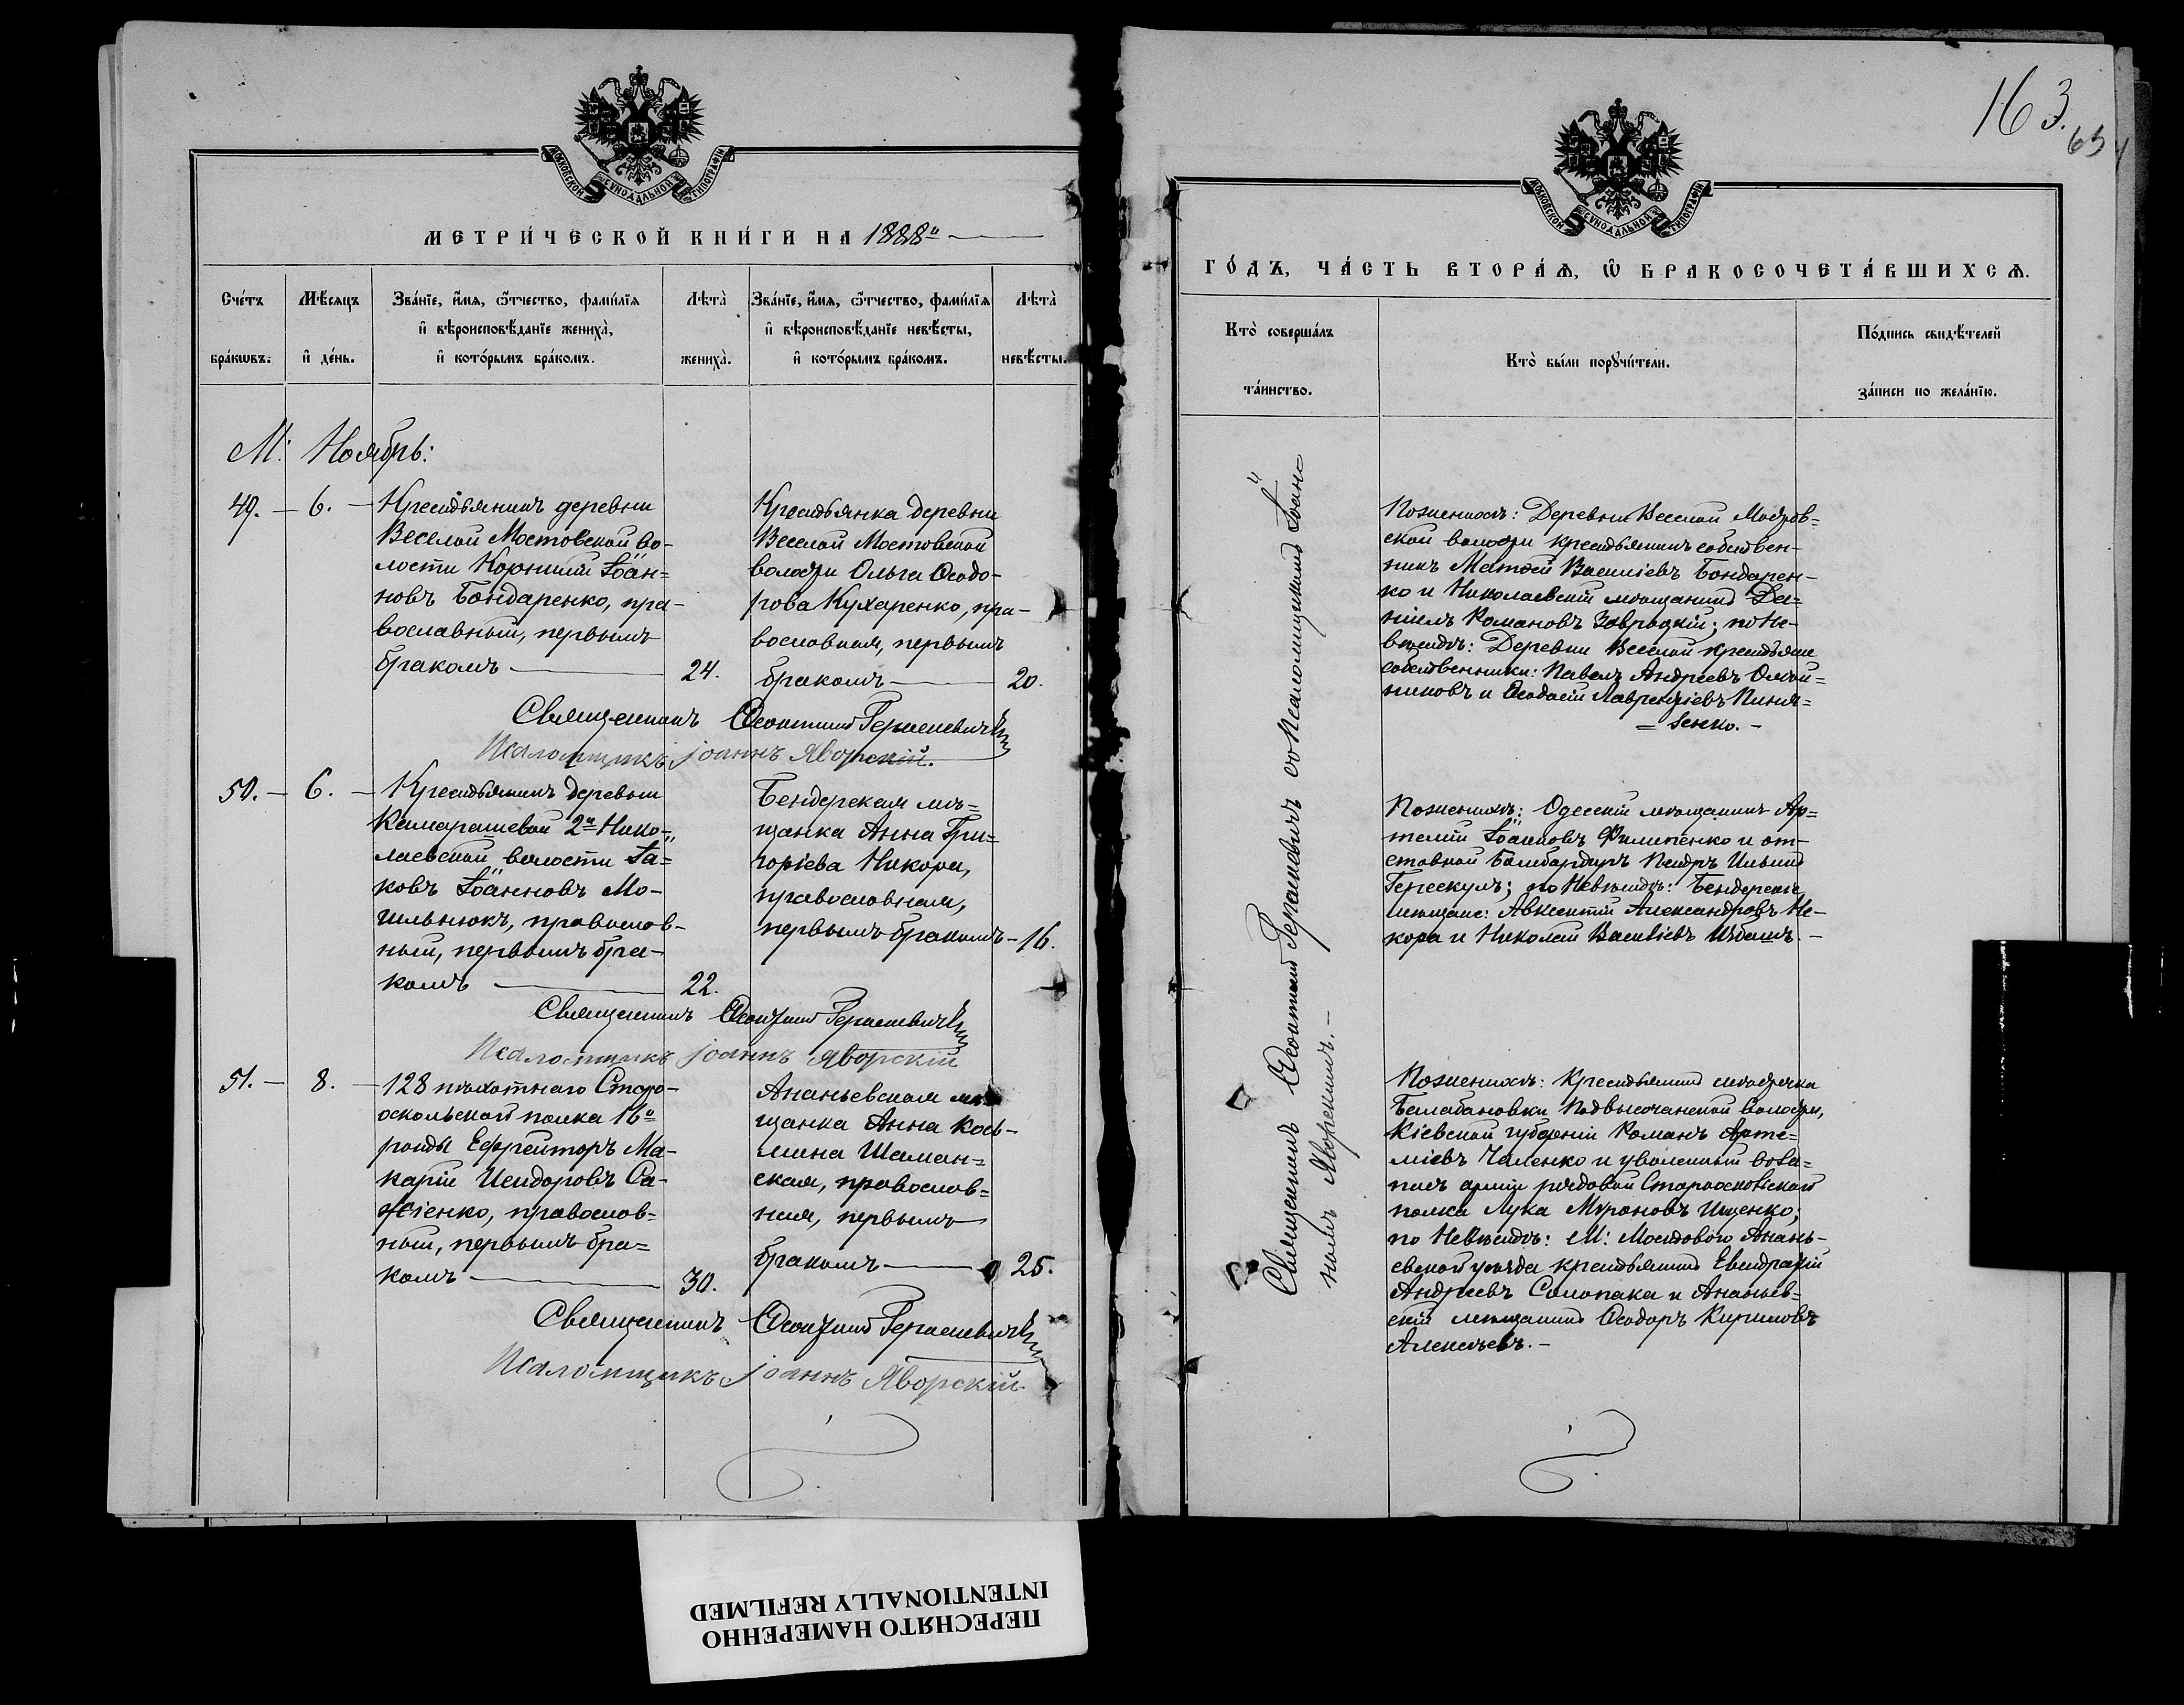 МОСКОВСКОЙ СѴНОДАЛЬНОЙ ТИПОГРАФІИ
МЕТРИ́ЧЕСКОЙ КНИ́ГИ НА 1888й
Сче́тъ бра́кωвъ.
Мѣ́сяцъ и҆ де́нь.
Зва́нїе, и҆́мѧ, ѻ҆́тчество, фами́лїѧ
и҆ вѣроисповѣ́данїе жениха̀,
и҆ кото́рымъ бра́комъ.
Лѣта̀ жениха̀.
Зва́нїе, и҆́мѧ, ѻ҆́тчество, фами́лїѧ
и҆ вѣроисповѣ́данїе невѣ́сты,
и҆ кото́рымъ бра́комъ.
Лѣта̀ невѣ́сты.
М: Ноябрь:
49. — 6. —
Крестьянинъ деревни
Веселой Мостовской во-
лости Корнилій Іоан=
новъ Бондаренко, пра-
вославный, первымъ
бракомъ — 24.
Крестьянка деревни
Веселой Мостовской
волости Ольга Ѳеодо-
рова Кухаренко, пра-
вославная, первымъ
бракомъ — 20.
Священникъ Ѳеоктистъ Герасневичъ
Псаломщикъ Іоаннъ Яворскій.
50. — 6. —
Крестьянинъ деревни
Камарашевой 2й Нико-
лаевской волости Іа=
ковъ Іоанновъ Мо-
гильнюкъ, православ-
ный, первымъ бра-
комъ — 22.
Бендерская мѣ=
щанка Анна Гри=
горіева Никора,
православная,
первымъ бракомъ — 16.
Священникъ
Псаломщикъ Іоаннъ Яворскій
51. — 8. —
128 пѣхотнаго Старо-
оскольскаго полка 16й
роты Ефрейторъ Ма-
карій Исидоровъ Са-
женко, православ=
ный, первымъ бра=
комъ — 30.
Ананьевская мѣ
щанка Анна Кось-
мина Шаман=
ская, православ=
ная, первымъ
бракомъ — 25.
Священникъ
Псаломщикъ Іоаннъ Яворскій
163.
МОСКОВСКОЙ СѴНОДАЛЬНОЙ ТИПОГРАФІИ
ГО́ДЪ, ЧА́СТЬ ВТОРА́Ѧ, Ѽ БРАКОСОЧЕТА́ВШИХСѦ.
Кто̀ соверша́лъ
та́инство.
Кто̀ бы́ли порꙋчи́тели.
По́дпись свидѣ́телей
за́писи по жела́нїю.
Священникъ съ Псаломщикомъ Іоан=
номъ Яворскимъ. —
По женихѣ: Деревни Веселой Мостов=
ской волости крестьянинъ собствен-
никъ Матѳей Василіевъ Бондарен-
ко и Николаевскій мѣщанинъ Да=
ніилъ Романовъ Завродкій; по не-
вѣстѣ: Деревни Веселой крестьяне
собственники: Павелъ Андреевъ Олей=
никовъ и Ѳеодосій Лаврентіевъ Пиня=
=зенко. —
По женихѣ: Одесскій мѣщанинъ Ар=
темій Іоанновъ Филипенко и от-
ставной Бамбардиръ Петръ Ильинъ
Герескулъ; по невѣстѣ: Бендерскіе
мѣщане: Авксентій Александровъ Не-
кора и Николай Василіевъ —
По женихѣ: Крестьянинъ мѣстечка
Балабановки Подвысочанской волости,
Кіевской губерніи Романъ Арте=
міевъ Чаленко и уволенный въ за=
пасъ арміи рядовой Старооскольскаго
полка Лука Мѵроновъ Ищенко;
по невѣстѣ: М: Мостового Анань-
евскаго уѣзда крестьянинъ Евстратій
Андреевъ Солопака и Ананьев=
скій мѣщанинъ Ѳеодоръ Кириловъ
Алексѣевъ. —
ПЕРЕСНЯТО НАМЕРЕННО
INTENTIONALLY REFILMED